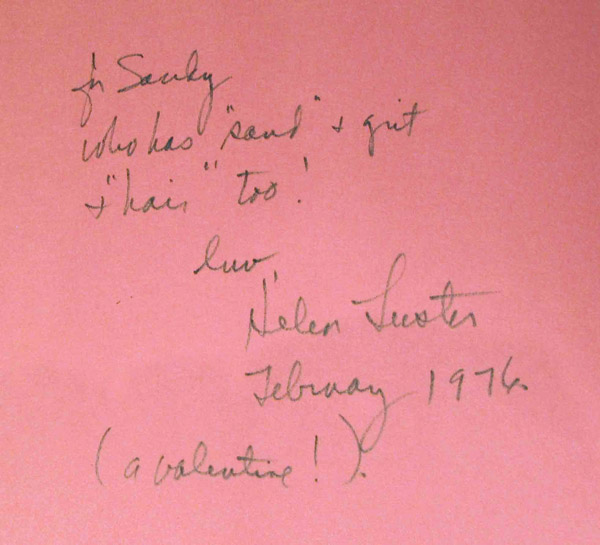 for Sandy
who has "sand" + grit
+ "hair" too!
luv,
Helen Luster
February 1976.
(a valentine!).